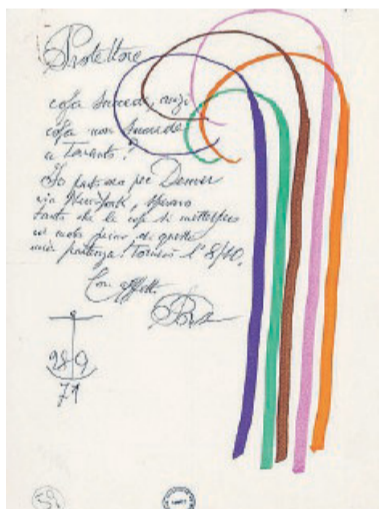 Protettore
cosa succede, anzi
cosa non succede
a Taranto?
Io parto ora per Denver
via New York, speravo
tanto che le cose si mettessero
in moto prima di questa
mia partenza! Torno l'8/10.
Con affetto
28 9
71